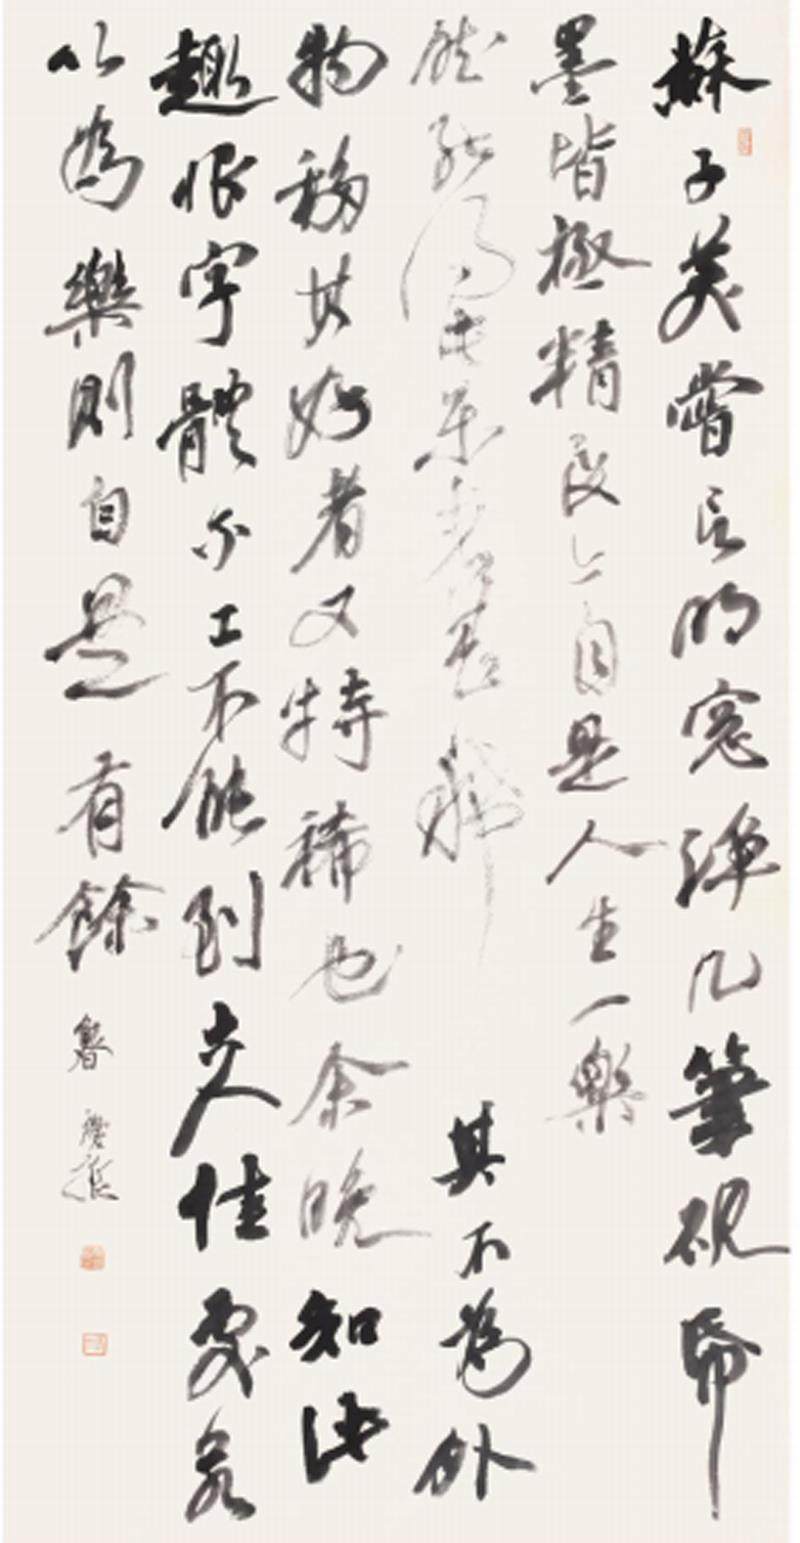 蘇子美嘗言明窓淨几筆硯帋
墨皆極精良亦自是人生一樂
然能得此樂者甚稀其不為外
物移其好者又特稀也余晚知此
趣恨字體不工不能到古人佳處若
以為樂則自是有餘